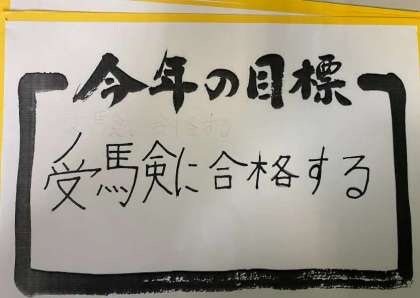 今年の目標
受馬剣に合格する